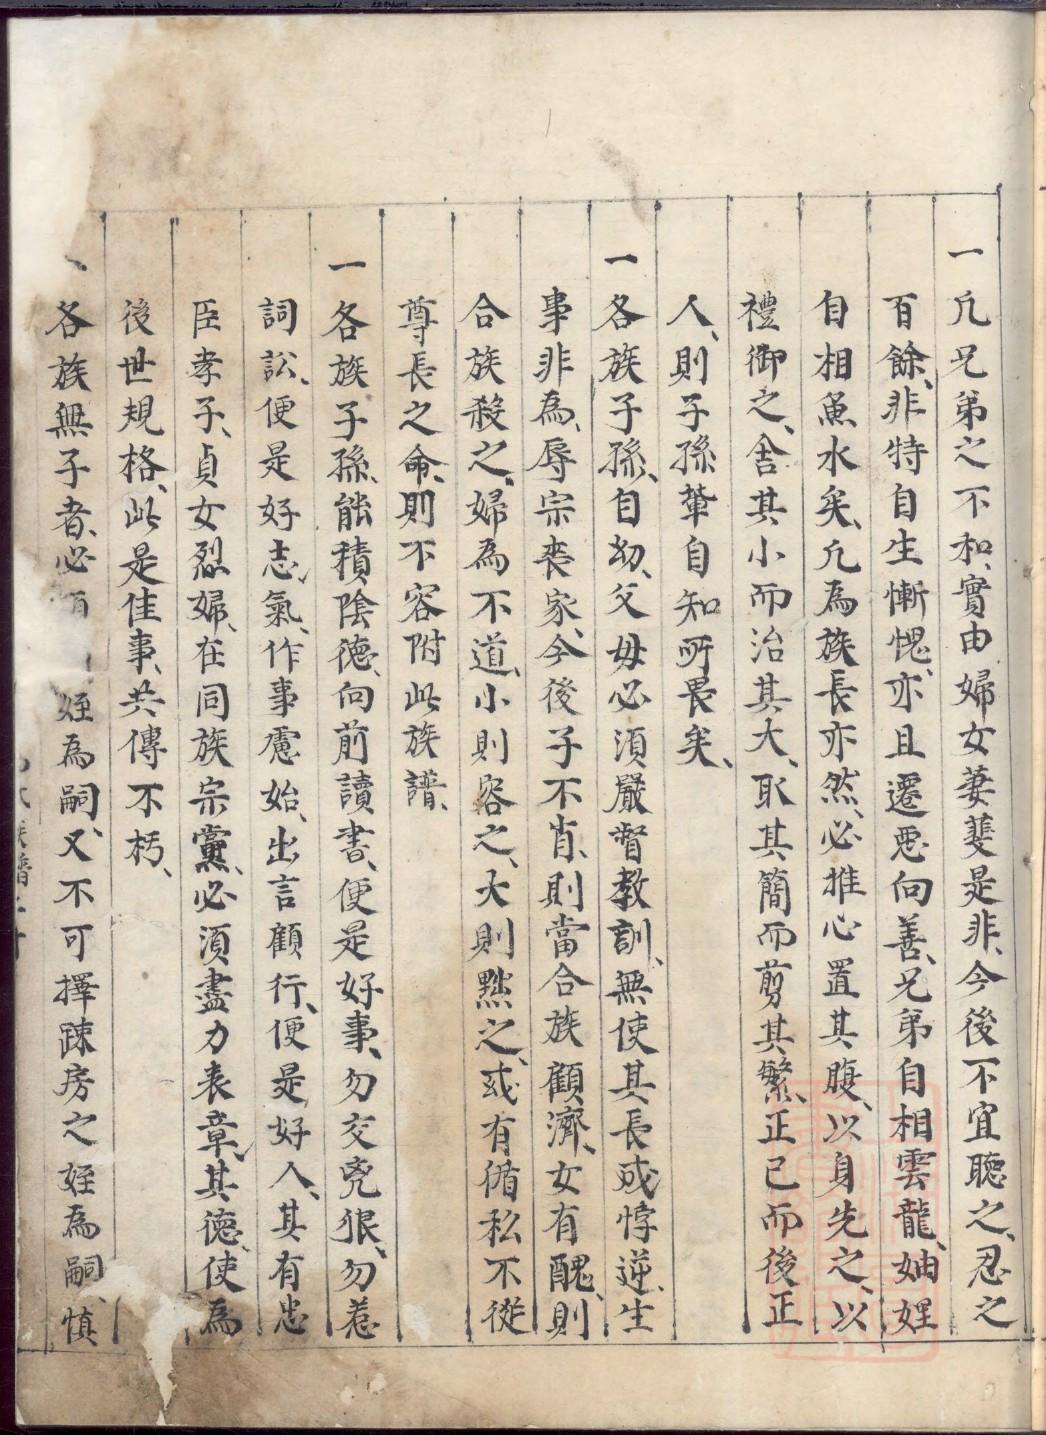 一凡兄弟之不和、實由婦女萋蔞是非、今後不宜聽之、忍之
百餘、非特自生慚愧、亦且遷惡向善、兄弟自相雲龍、妯娌
自相魚水矣、凡為族長亦然、必推心置其腹、以身先之、以
禮御之、舍其小而治其大、取其簡而剪其繁、正己而後正
人、則子孫輩自知所畏矣、
一各族子孫、自幼、父母必須嚴督教訓、無使其長成悖逆、生
事非為、辱宗喪家、今後子不肖、則當合族顧濟、女有醜、則
合族殺之、婦為不道、小則容之、大則黜之、或有循私不從
尊長之命、則不容附此族譜、
一各族子孫、能積陰德、向前讀書、便是好事、勿交兇狠、勿惹
詞訟、便是好志氣、作事慮始、出言顧行、便是好人、其有忠
臣孝子、貞女烈婦、在同族宗黨、必須盡力表章、其德、使為
後世規格、此是佳事、共傳不朽、
各族無子者、必須姪為嗣、又不可擇疎房之姪為嗣、慎
族譜